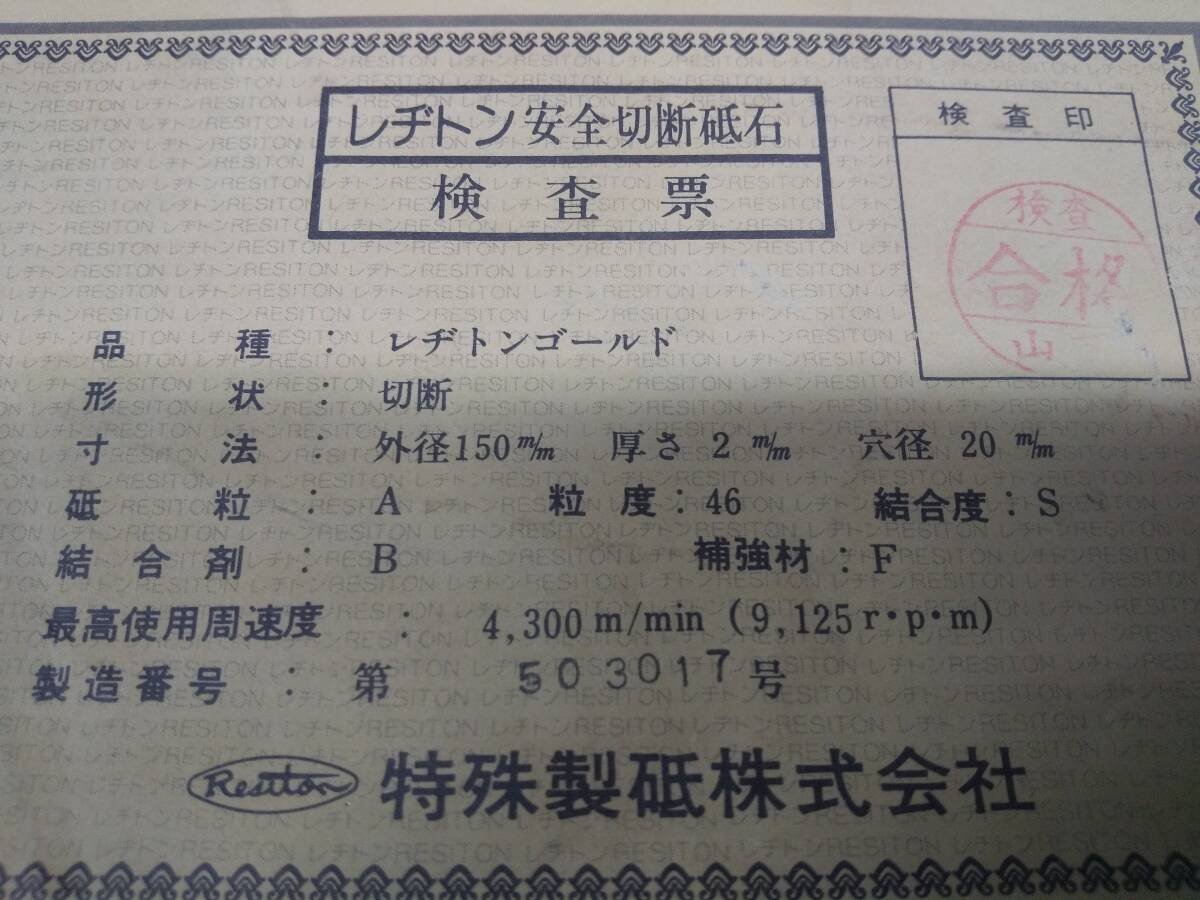 レヂトン安全切断砥石
検査票
検査印
検査
合格
山
品種：レヂトンゴールド
形状：切断
寸法：外径150m/m 厚さ2m/m 穴径20m/m
砥粒：A 粒度：46 結合度：S
結合剤：B 補強材：F
最高使用周速度：4,300m/min（9,125r・p・m）
製造番号：第503017号
Resiton 特殊製砥株式会社